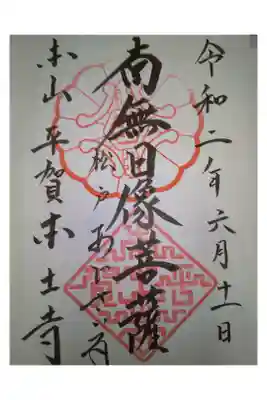 令和二年六月十一日
南無日像菩薩
松戸あじさい寺
本山 平賀 本土寺